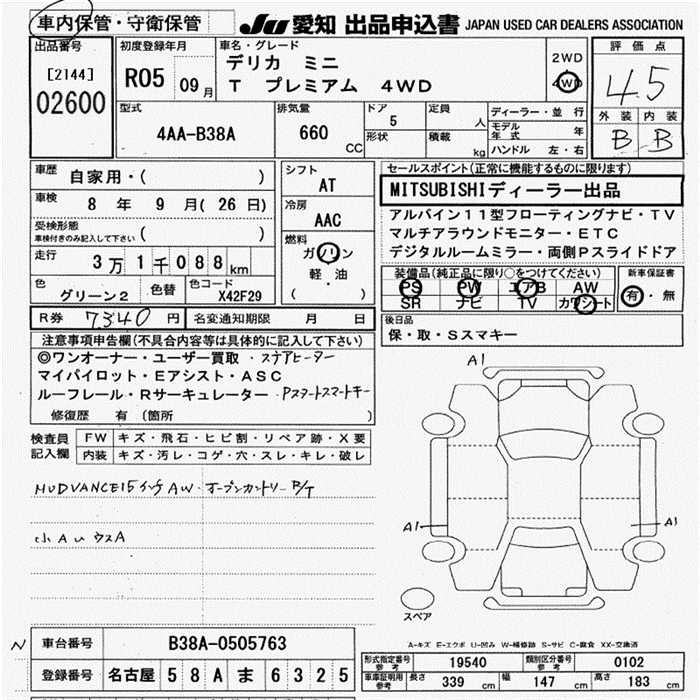 車内保管・守衛保管
JU 愛知 出品申込書 JAPAN USED CAR DEALERS ASSOCIATION
出品番号
[2144]
02600
初度登録年月
R05 09月
車名・グレード
デリカ ミニ
T プレミアム 4WD
2WD
4WD
評価点
4.5
外装 内装
B B
型式
4AA-B38A
排気量
660 CC
ドア
5
形状
定員 人
積載 kg
ディーラー・並行
モデル年式 年
ハンドル 左・右
車歴
自家用・( )
車検
8 年 9 月( 26 日)
受検形態
車検付きのみ記入して下さい ( )
走行
3万1千088km
色
グリーン2
色替
色コード
X42F29
シフト
AT
冷房
AAC
燃料
ガソリン
軽・油
( )
セールスポイント(正常に機能するものに限ります)
MITSUBISHIディーラー出品
アルパイン11型フローティングナビ・TV
マルチアラウンドモニター・ETC
デジタルルームミラー・両側Pスライドドア
装備品(純正品に限り○をつけてください)
PS PW エアB AW
SR ナビ TV カワシート
新車保証書
有・無
R券 7340 円
名変通知期限 月 日
後日品
保・取・Sスマキー
注意事項申告欄(不具合内容等は具体的に記入して下さい)
◎ワンオーナー・ユーザー買取・ステアヒーター
マイパイロット・Eアシスト・ASC
ルーフレール・Rサーキュレーター・Pスタートスマートキー
修復歴 有(箇所 )
検査員記入欄
FW キズ・飛石・ヒビ割・リペア跡・X要
内装 キズ・汚レ・コゲ・穴・スレ・キレ・破レ
MUDVANCE15インチAW・オープンカントリーR/T
小AU ウスA
A1
A1
A1
スペア
A-キズ E-エクボ U-凹み W-補修跡 S-サビ C-腐食 XX-交換済
N
車台番号 B38A-0505763
登録番号 名古屋 58A ま 6325
形式指定番号参考 19540
類別区分番号参考 0102
車庫証明用参考 長さ 339 cm 幅 147 cm 高さ 183 cm